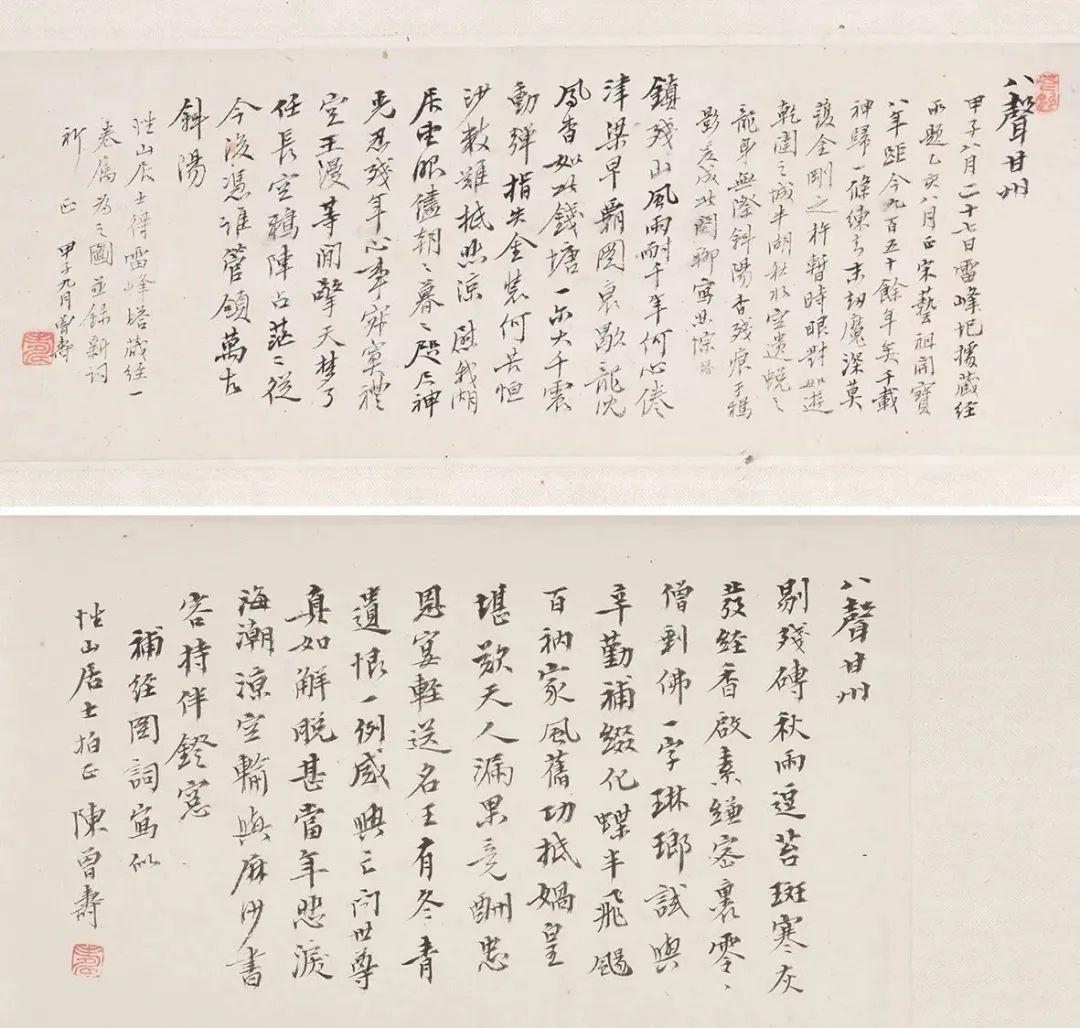 八聲甘州
甲子八月二十七日雷峰圮掇藏经
所題乙亥八月正宋藝祖開寶
八年距今九百五十餘年矣千載
神歸一條練去末劫魔深莫
護金剛之杵暫時眼對如遊
乾闥之城半湖秋水空遺蜕之
龍身無際斜陽杳殘痕于鴉
影爰成此闋聊寫悲悰
鎮殘山風雨耐千年何心倦
津梁早霸圖衰歇龍沈
鳳杳如此錢塘一尒大千震
動彈指失金裝何苦恒
沙數難抵悲涼 慰我湖
居東眼儘朝〻暮〻咫尺神
光忍殘年心事寂寞禮
空王漫等閒擎天夢了
任長空鴉陣占茫〻從
今後憑誰管領萬古
斜陽
性山居士得雷峰塔藏经一
卷屬為之圖並録新詞
祈正 甲子九月曾壽
八聲甘州
剔殘磚秋雨逗苔斑寒灰
發经香啟素縑密裹零〻
僧剩佛一字琳瑯試與
辛勤補綴化蝶半飛颺
百衲家風舊功抵媧皇
堪歎天人漏果竟酬忠
恩宴輕送名王有冬青
遺恨一例感興亡问世尊
真如解脱甚當年悲淚
海潮涼空輸與麻沙書
客持伴鐙窓
補经圖詞寫似
性山居士拍正 陳曾壽